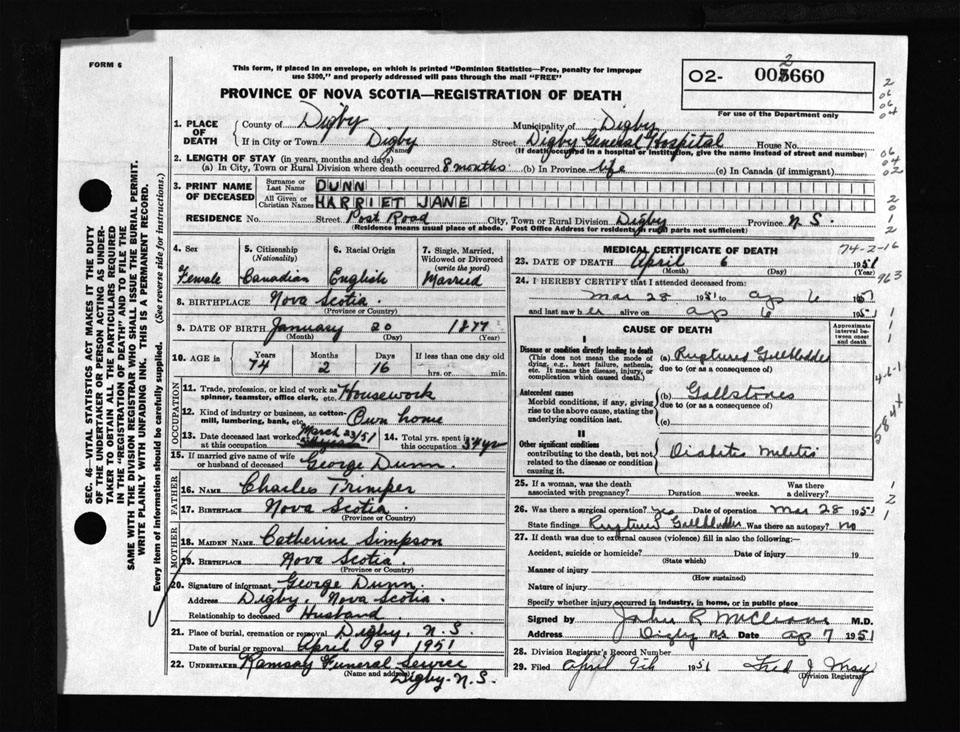 FORM 6
This form, if placed in an envelope, on which is printed "Dominion Statistics—Free, penalty for improper
use $300," and properly addressed will pass through the mail "FREE"
PROVINCE OF NOVA SCOTIA—REGISTRATION OF DEATH
02- 002660
For use of the Department only
1. PLACE OF DEATH
County of Digby Municipality of Digby
If in City or Town Digby Street Digby General Hospital House No.
(Name) (If death occurred in a hospital or institution, give the name instead of street and number)
2. LENGTH OF STAY (in years, months and days)
(a) In City, Town or Rural Division where death occurred 8 months (b) In Province life (c) In Canada (if immigrant)
3. PRINT NAME OF DECEASED
Surname or Last Name DUNN
All Given or Christian Names HARRIET JANE
RESIDENCE No. Street Post Road City, Town or Rural Division Digby Province N.S.
(Residence means usual place of abode. Post Office Address for residents in rural parts not sufficient)
4. Sex Female
5. Citizenship (Nationality) Canadian
6. Racial Origin English
7. Single, Married, Widowed or Divorced (write the word) Married
8. BIRTHPLACE Nova Scotia
(Province or Country)
9. DATE OF BIRTH January 20 1877
(Month) (Day) (Year)
10. AGE in Years 74 Months 2 Days 16 If less than one day old hrs. or min.
OCCUPATION
11. Trade, profession, or kind of work as spinner, teamster, office clerk, etc. Housework
12. Kind of industry or business, as cotton-mill, lumbering, bank, etc. Own home
13. Date deceased last worked at this occupation March 23/51
14. Total yrs. spent in this occupation 54 yr
15. If married give name of wife or husband of deceased George Dunn.
FATHER
16. NAME Charles Trimper
17. BIRTHPLACE Nova Scotia
(Province or Country)
MOTHER
18. MAIDEN NAME Catherine Simpson
19. BIRTHPLACE Nova Scotia
(Province or Country)
20. Signature of informant George Dunn.
Address Digby, Nova Scotia.
Relationship to deceased Husband
21. Place of burial, cremation or removal Digby, N.S.
Date of burial or removal April 9 1951
22. UNDERTAKER Ramsay Funeral Service
(Name and address) Digby-N.S.
MEDICAL CERTIFICATE OF DEATH
74-2-16
23. DATE OF DEATH April 6 1951
(Month) (Day) (Year)
24. I HEREBY CERTIFY that I attended deceased from:
Mar 28 1951 to ap 6 1951
and last saw her alive on ap 6 1951
CAUSE OF DEATH
Approximate interval between onset and death
I
Disease or condition directly leading to death
(This does not mean the mode of dying, e.g., heart failure, asthenia, etc. It means the disease, injury, or complication which caused death.)
(a) Ruptured Gallbladder
due to (or as a consequence of)
Antecedent causes
Morbid conditions, if any, giving rise to the above cause, stating the underlying condition last.
(b) Gallstones
due to (or as a consequence of)
(c)
II
Other significant conditions
contributing to the death, but not related to the disease or condition causing it.
Diabetes Militis
25. If a woman, was the death associated with pregnancy? Duration weeks. Was there a delivery?
26. Was there a surgical operation? yes Date of operation Mar 28 1951
State findings Ruptured Gallbladder Was there an autopsy? no
27. If death was due to external causes (violence) fill in also the following:—
Accident, suicide or homicide? Date of injury 19
(State which)
Manner of injury
(How sustained)
Nature of injury
Specify whether injury occurred in industry, in home, or in public place
Signed by John R M.D.
Address Digby NS Date ap 7 1951
28. Division Registrar's Record Number
29. Filed April 9th 1951 Fred J. May
(Division Registrar)
SEC. 46—VITAL STATISTICS ACT MAKES IT THE DUTY
OF THE UNDERTAKER OR PERSON ACTING AS UNDER-
TAKER TO OBTAIN ALL THE PARTICULARS REQUIRED
IN THE "REGISTRATION OF DEATH" AND TO FILE THE
SAME WITH THE DIVISION REGISTRAR WHO SHALL ISSUE THE BURIAL PERMIT.
WRITE PLAINLY WITH UNFADING INK. THIS IS A PERMANENT RECORD.
Every item of information should be carefully supplied. (See reverse side for instructions.)